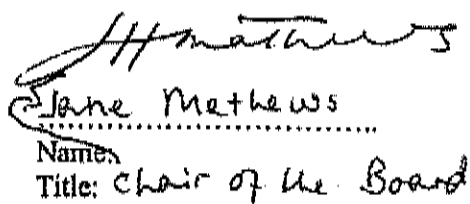 JHMathews
Jane Mathews
Name:
Title: Chair of the Board